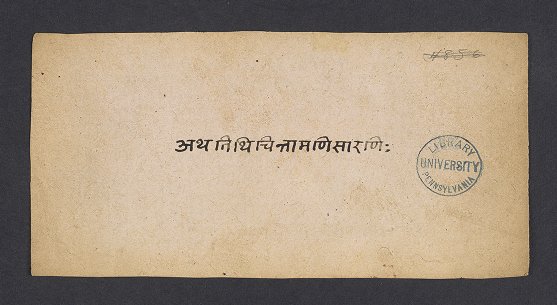 अथ तिथिचिन्तामणिसारणिः
LIBRARY
UNIVERSITY
PENNSYLVANIA